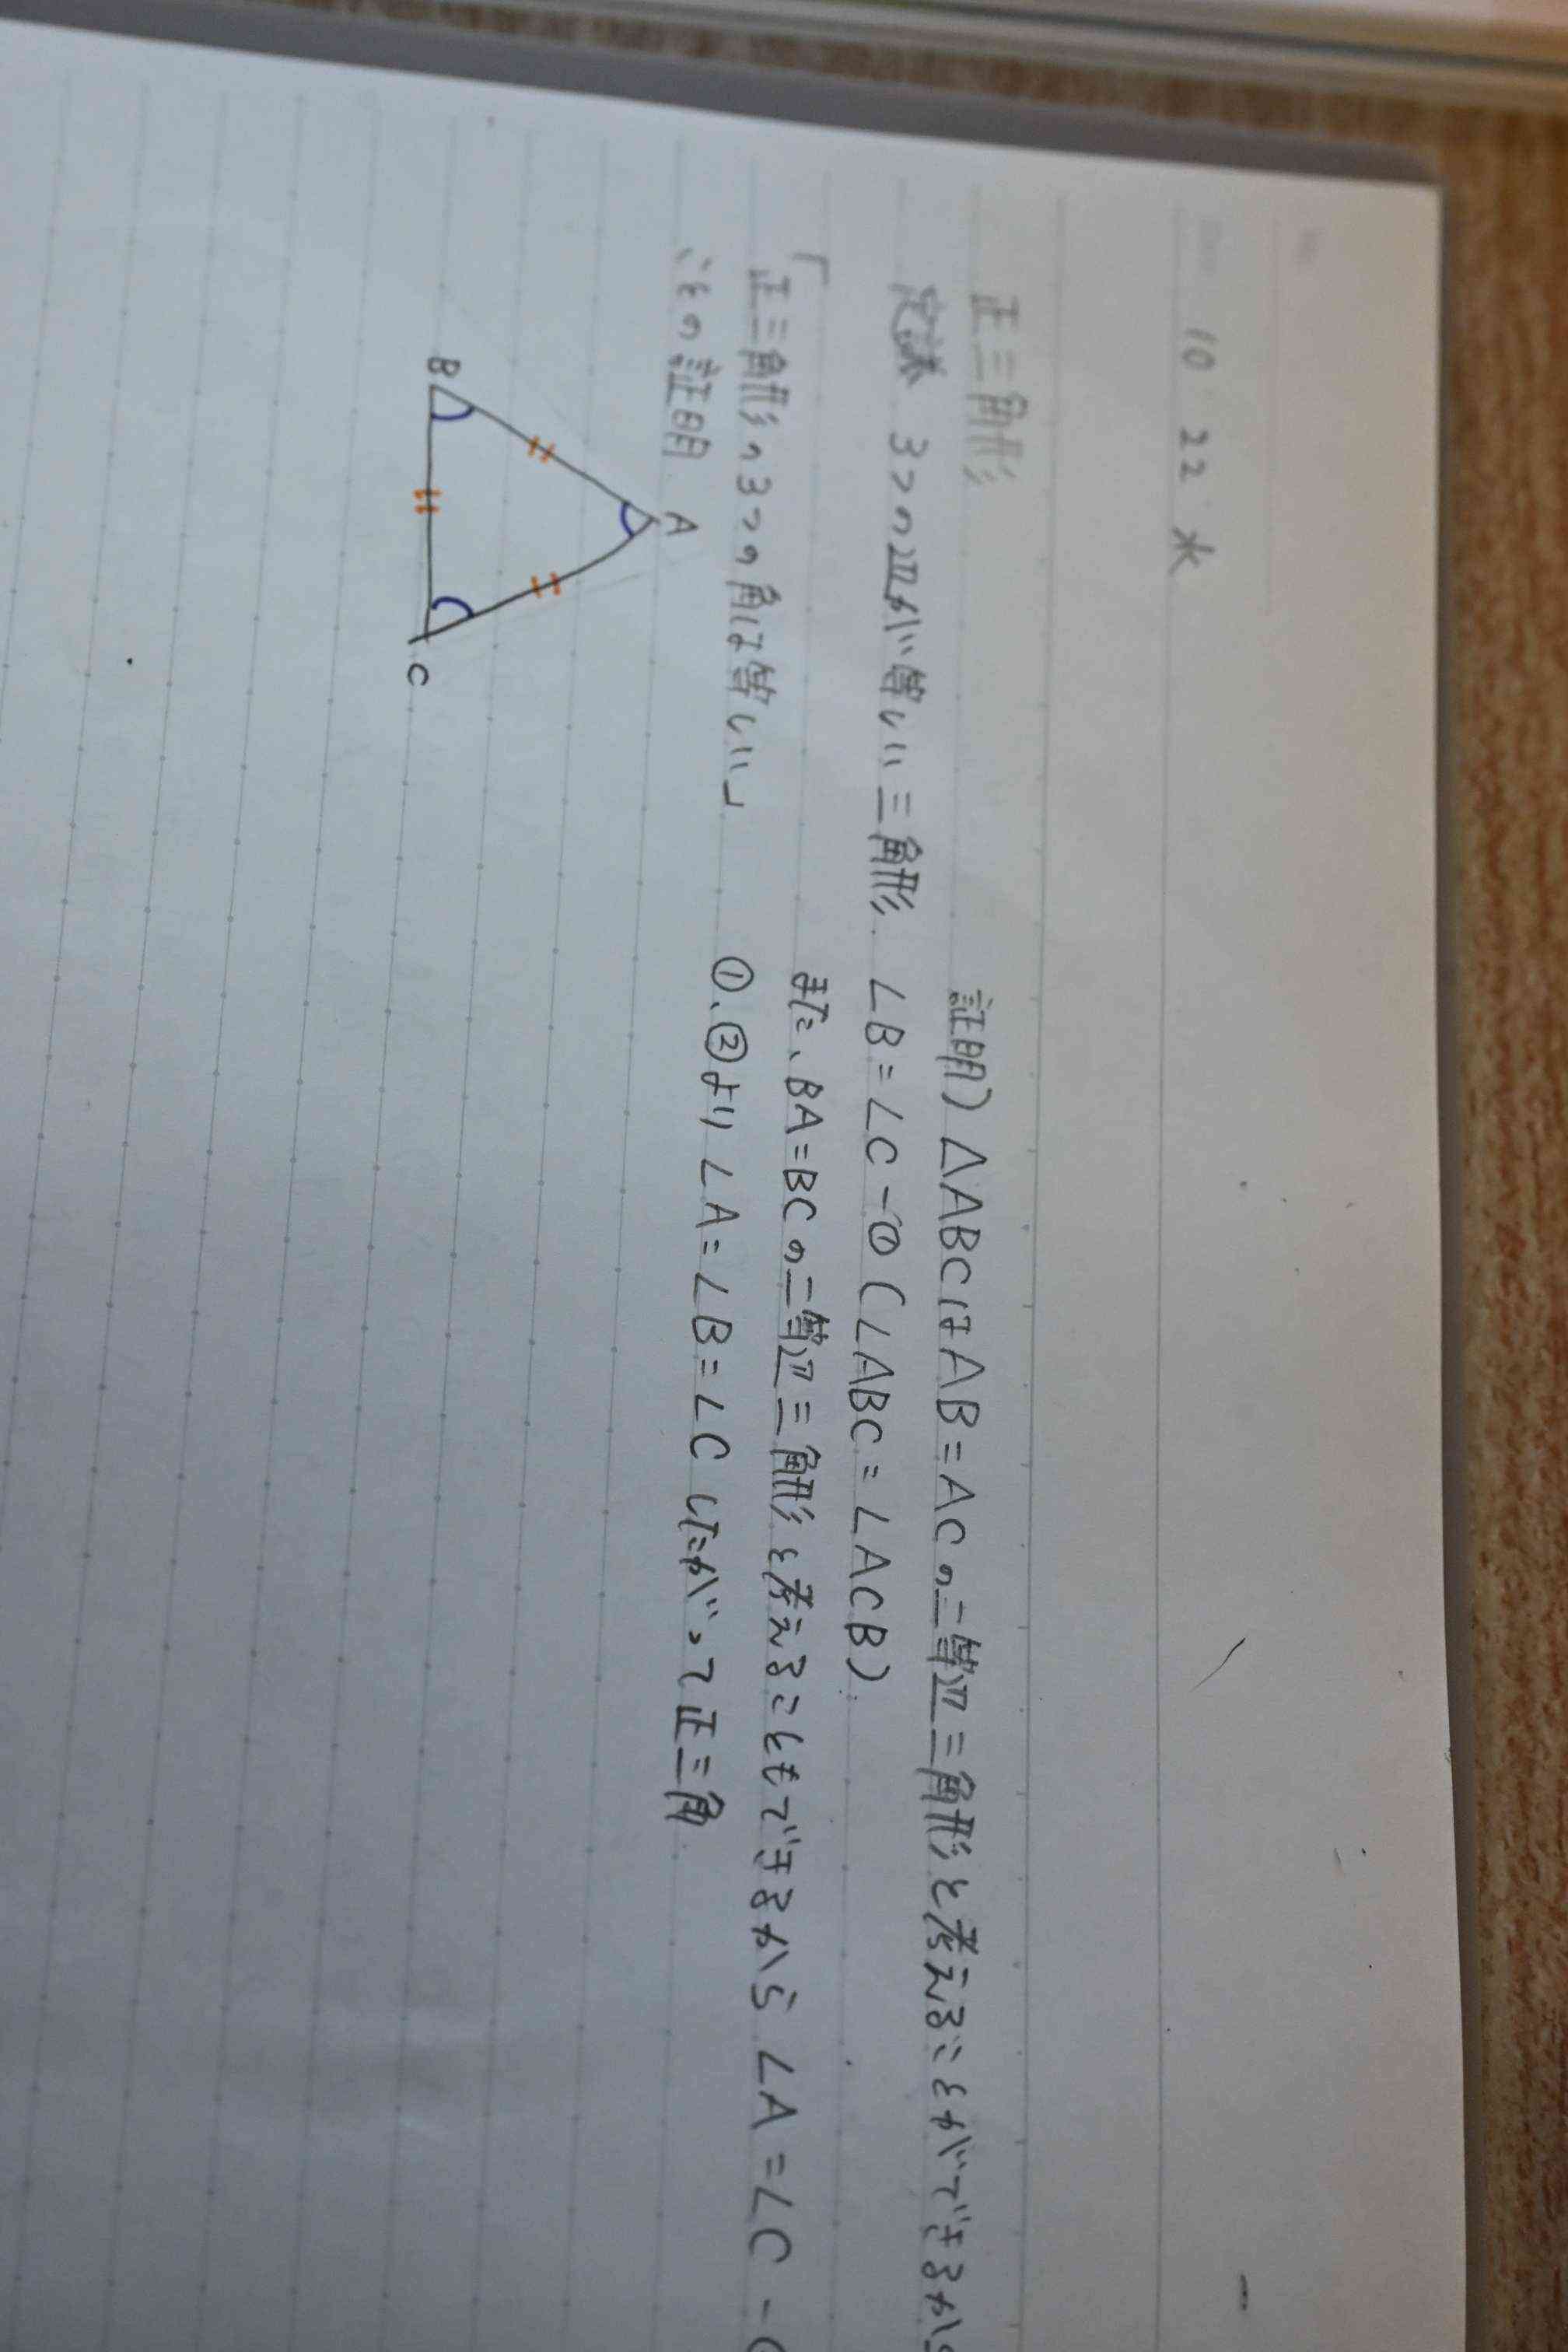 10 22 水
正三角形
定義 3つの辺が等しい三角形
「正三角形の3つの角は等しい」
ことの証明
A
B
C
証明) △ABCはAB=ACの二等辺三角形と考えることができるから
∠B=∠C-① (∠ABC=∠ACB)
また、BA=BCの二等辺三角形と考えることもできるから ∠A=∠C -
①、②より ∠A=∠B=∠C したがって正三角